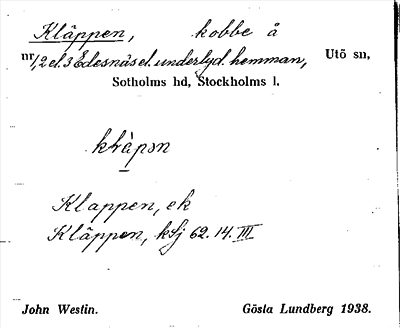 Kläppen, kobbe å
nr 1, 2 el. 3 Edesnäs el. underlyd. hemman, Utö sn,
Sotholms hd, Stockholms l.
klàpən
Klappen, ek
Kläppen, ksj 62. 14. III
John Westin. Gösta Lundberg 1938.